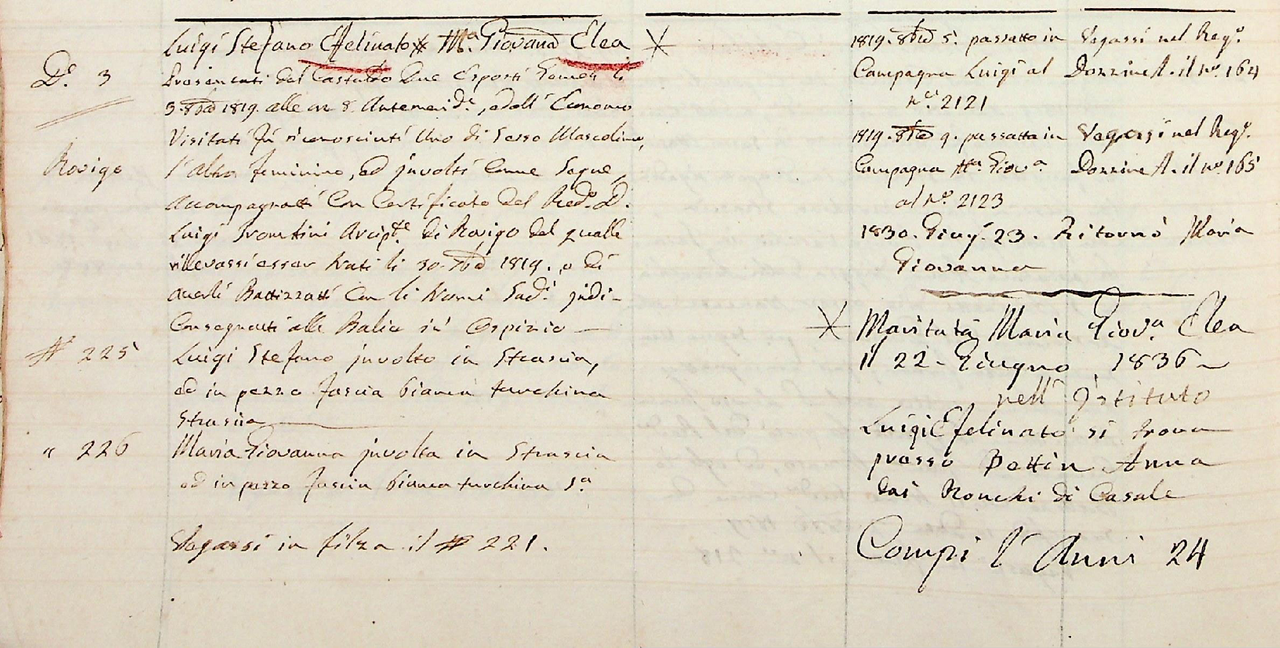 Luigi Stefano Efelinato * M.a Giovana Elea *
D.o 3
Presentati dal Custode Due Esposti Gemeli li
3 8bre 1819. alle ore 8. Antemerid.e, e dall' Economo
Visitati fù riconosciuti Uno di Sesso Mascolino,
Rovigo
l'altro feminino, ed involti Come Segue,
Accompagnatti Con Certificato del Red.o D.
Luigi Arcip.te di Rovigo dal qualle
rillevassi esser Nati li 30. 7bre 1819. e di
Averli Battizzatti Con li Nomi Sud.i indi-
Consegnati alle Balie in Ospizio —
N 225
Luigi Stefano involto in Strascia,
ed in pezzo fascia bianca turchina
Strascia
" 226
Maria Giovanna involta in Strascia
ed in pezzo fascia bianca turchina
Vegassi in filza il N 221.
1819. 8bre 5. passatto in
Campagna Luigi al
n.o 2121
1819. 8bre 9. passatta in
Campagna M.a Giov.a
al n.o 2123
1830. Giug.o 23. Ritornò Maria
Giovanna
* Maritata Maria Giov.a Elea
il 22 Giugno 1836
nell' Istituto
Luigi Efelinato si trova
presso Bettin Anna
dai Ronchi di Casale
Compi l' Anni 24
Vegassi nel Reg.o
Dozzine A. il n.o 164
Vegassi nel Reg.o
Dozzine A. il n.o 165